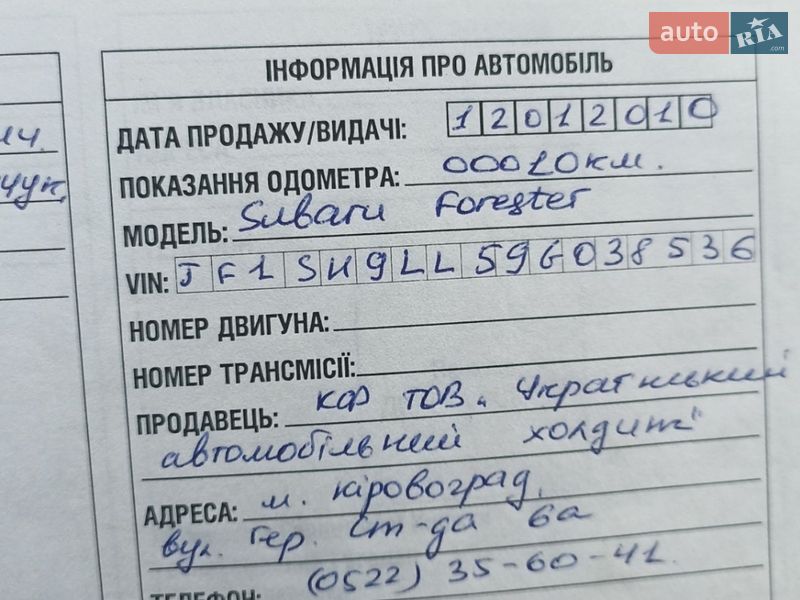 auto RIA .com
ІНФОРМАЦІЯ ПРО АВТОМОБІЛЬ
ДАТА ПРОДАЖУ/ВИДАЧІ: 12012010
ПОКАЗАННЯ ОДОМЕТРА: 00010км.
МОДЕЛЬ: Subaru Forester
VIN: JF1SH9LL59G038536
НОМЕР ДВИГУНА:
НОМЕР ТРАНСМІСІЇ:
ПРОДАВЕЦЬ: КФ ТОВ „Український
автомобільний холдинг"
АДРЕСА: м. Кіровоград,
вул. Гер. Ст-да 6а
ТЕЛЕФОН: (0522) 35-60-41.